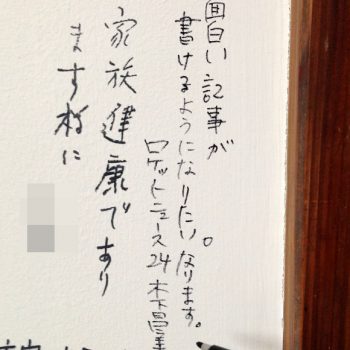 面白い記事が
書けるようになりたい。なります。
ロケットニュース24
家族健康であり
ます様に